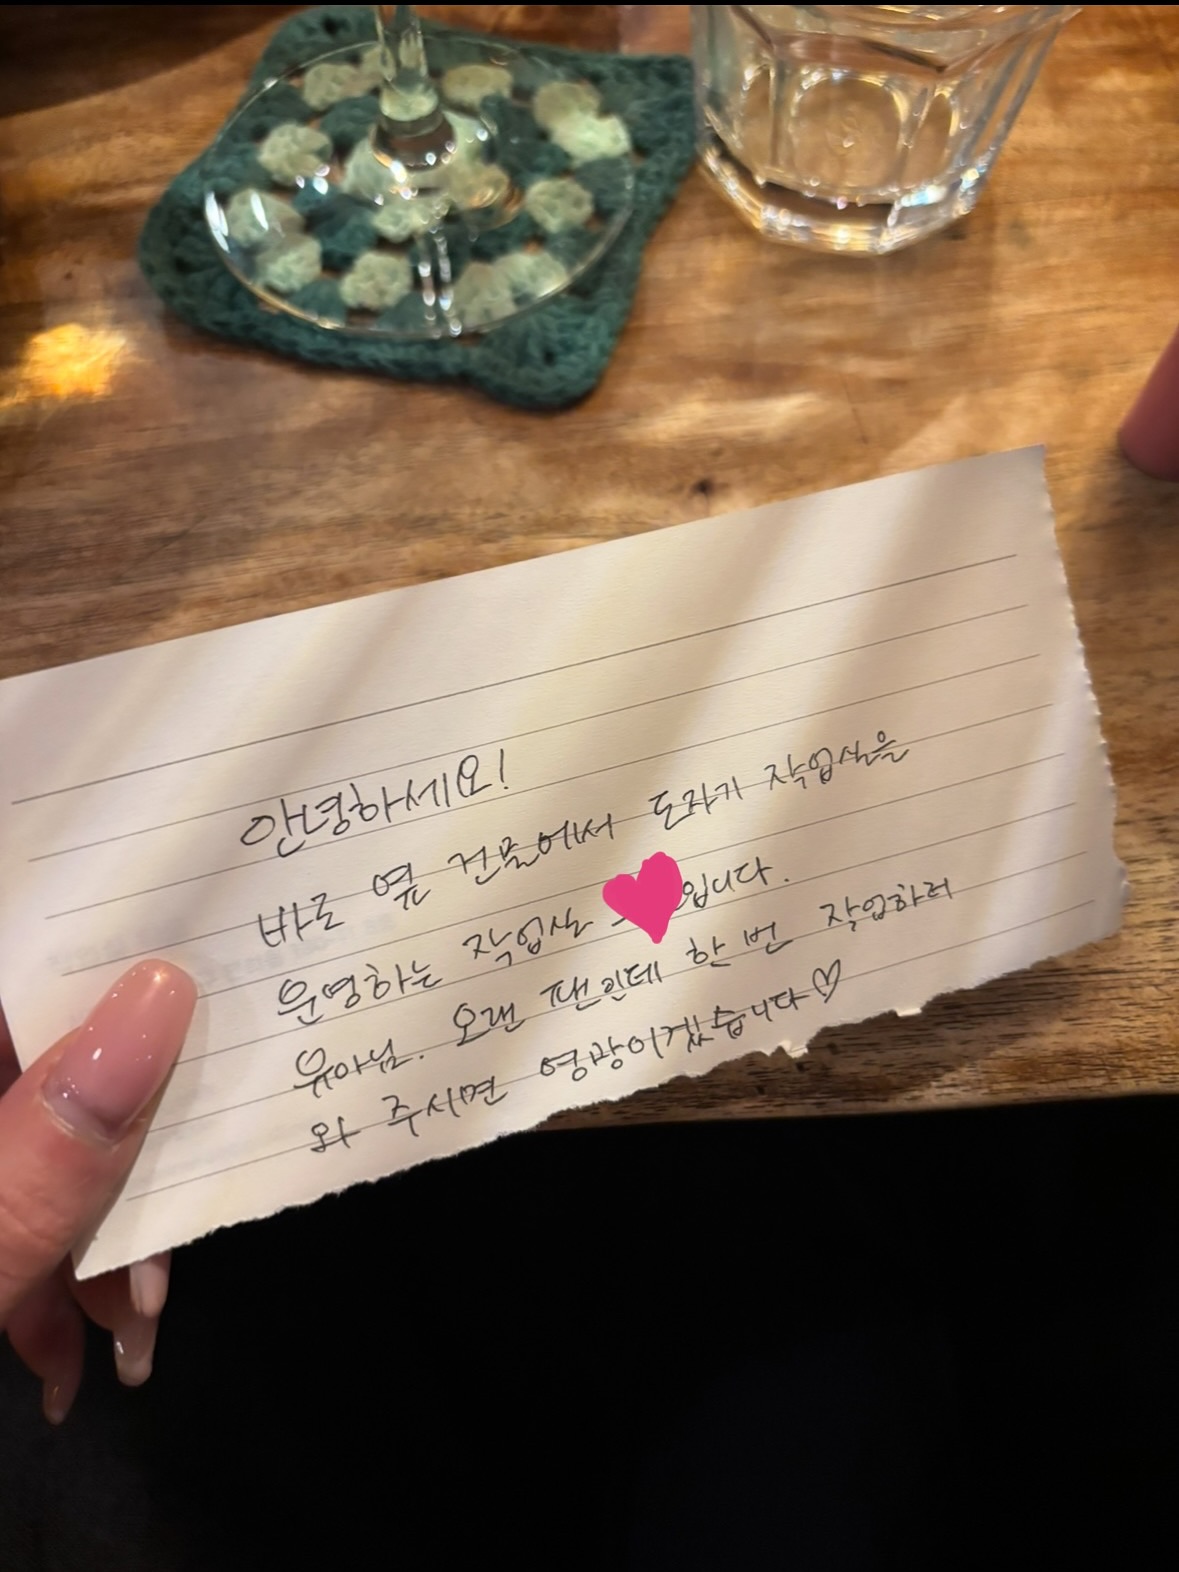 안녕하세요!
바로 옆 건물에서 도자기 작업실을
운영하는 작업실 입니다.
유아님. 오랜 팬인데 한 번 작업하러
와 주시면 영광이겠습니다♡